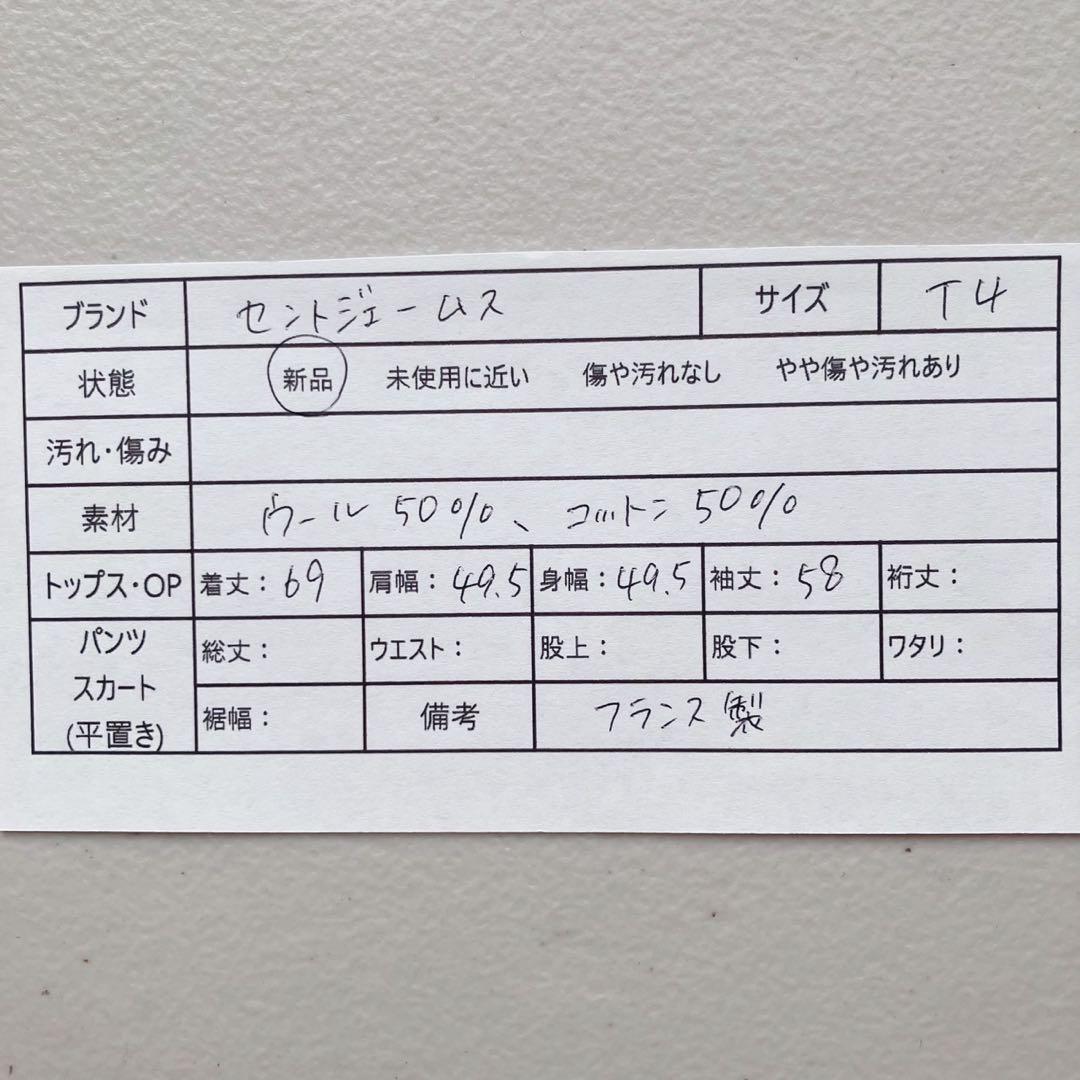 ブランド セントジェームス サイズ T4
状態 新品 未使用に近い 傷や汚れなし やや傷や汚れあり
汚れ・傷み
素材 ウール 50%、コットン 50%
トップス・OP 着丈：69 肩幅：49.5 身幅：49.5 袖丈：58 裄丈：
パンツ スカート (平置き) 総丈： ウエスト： 股上： 股下： ワタリ：
裾幅： 備考 フランス製